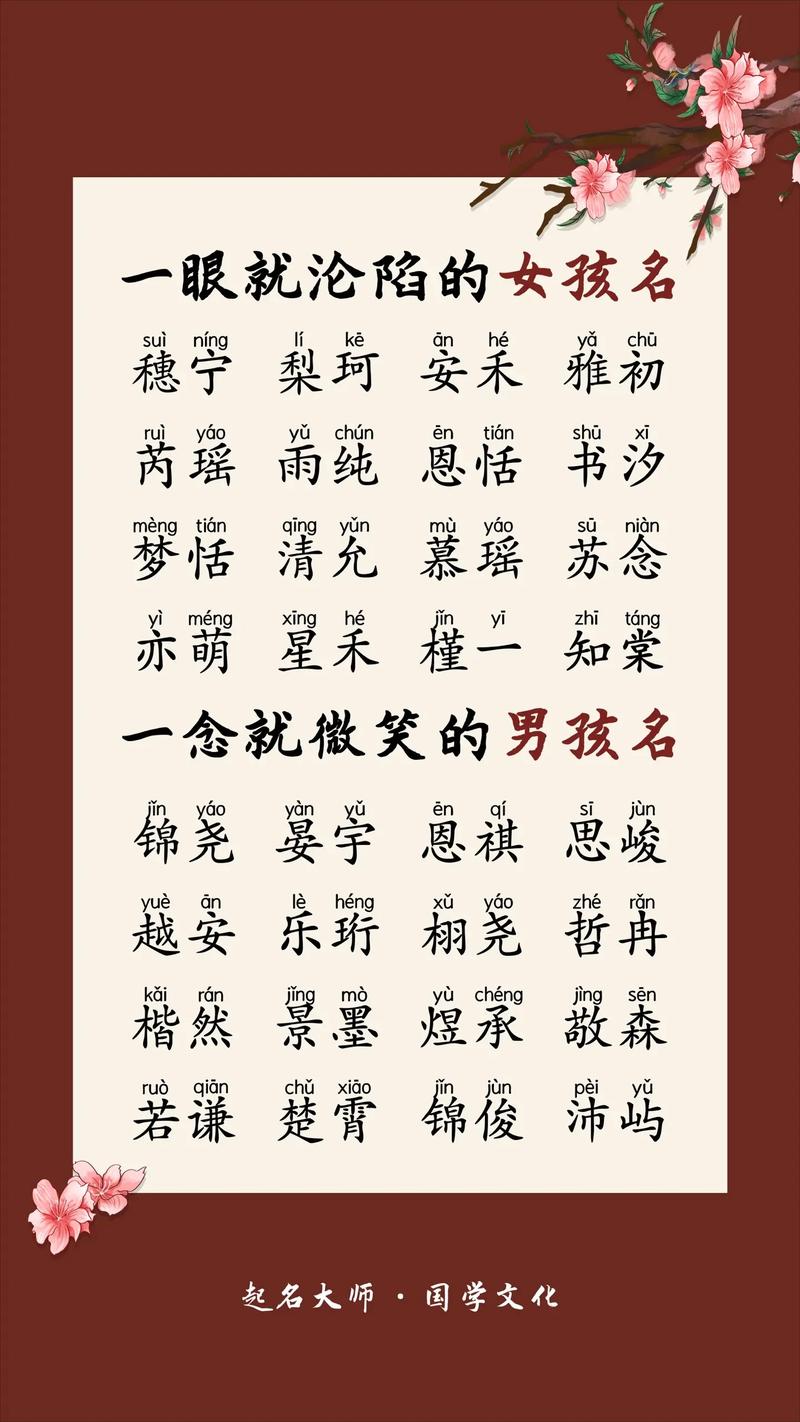 一眼就沦陷的女孩名
suì níng lí kē ān hé yǎ chū
穗宁 梨珂 安禾 雅初
ruì yáo yǔ chún ēn tián shū xī
芮瑶 雨纯 恩恬 书汐
mèng tián qīng yǔn mù yáo sū niàn
梦恬 清允 慕瑶 苏念
yì méng xīng hé jǐn yī zhī táng
亦萌 星禾 槿一 知棠
一念就微笑的男孩名
jǐn yáo yàn yǔ ēn qí sī jùn
锦尧 晏宇 恩祺 思峻
yuè ān lè héng xǔ yáo zhé rǎn
越安 乐珩 栩尧 哲冉
kǎi rán jǐng mò yù chéng jìng sēn
楷然 景墨 煜承 敬森
ruò qiān chǔ xiāo jǐn jùn pèi yǔ
若谦 楚霄 锦俊 沛屿
起名大师·国学文化